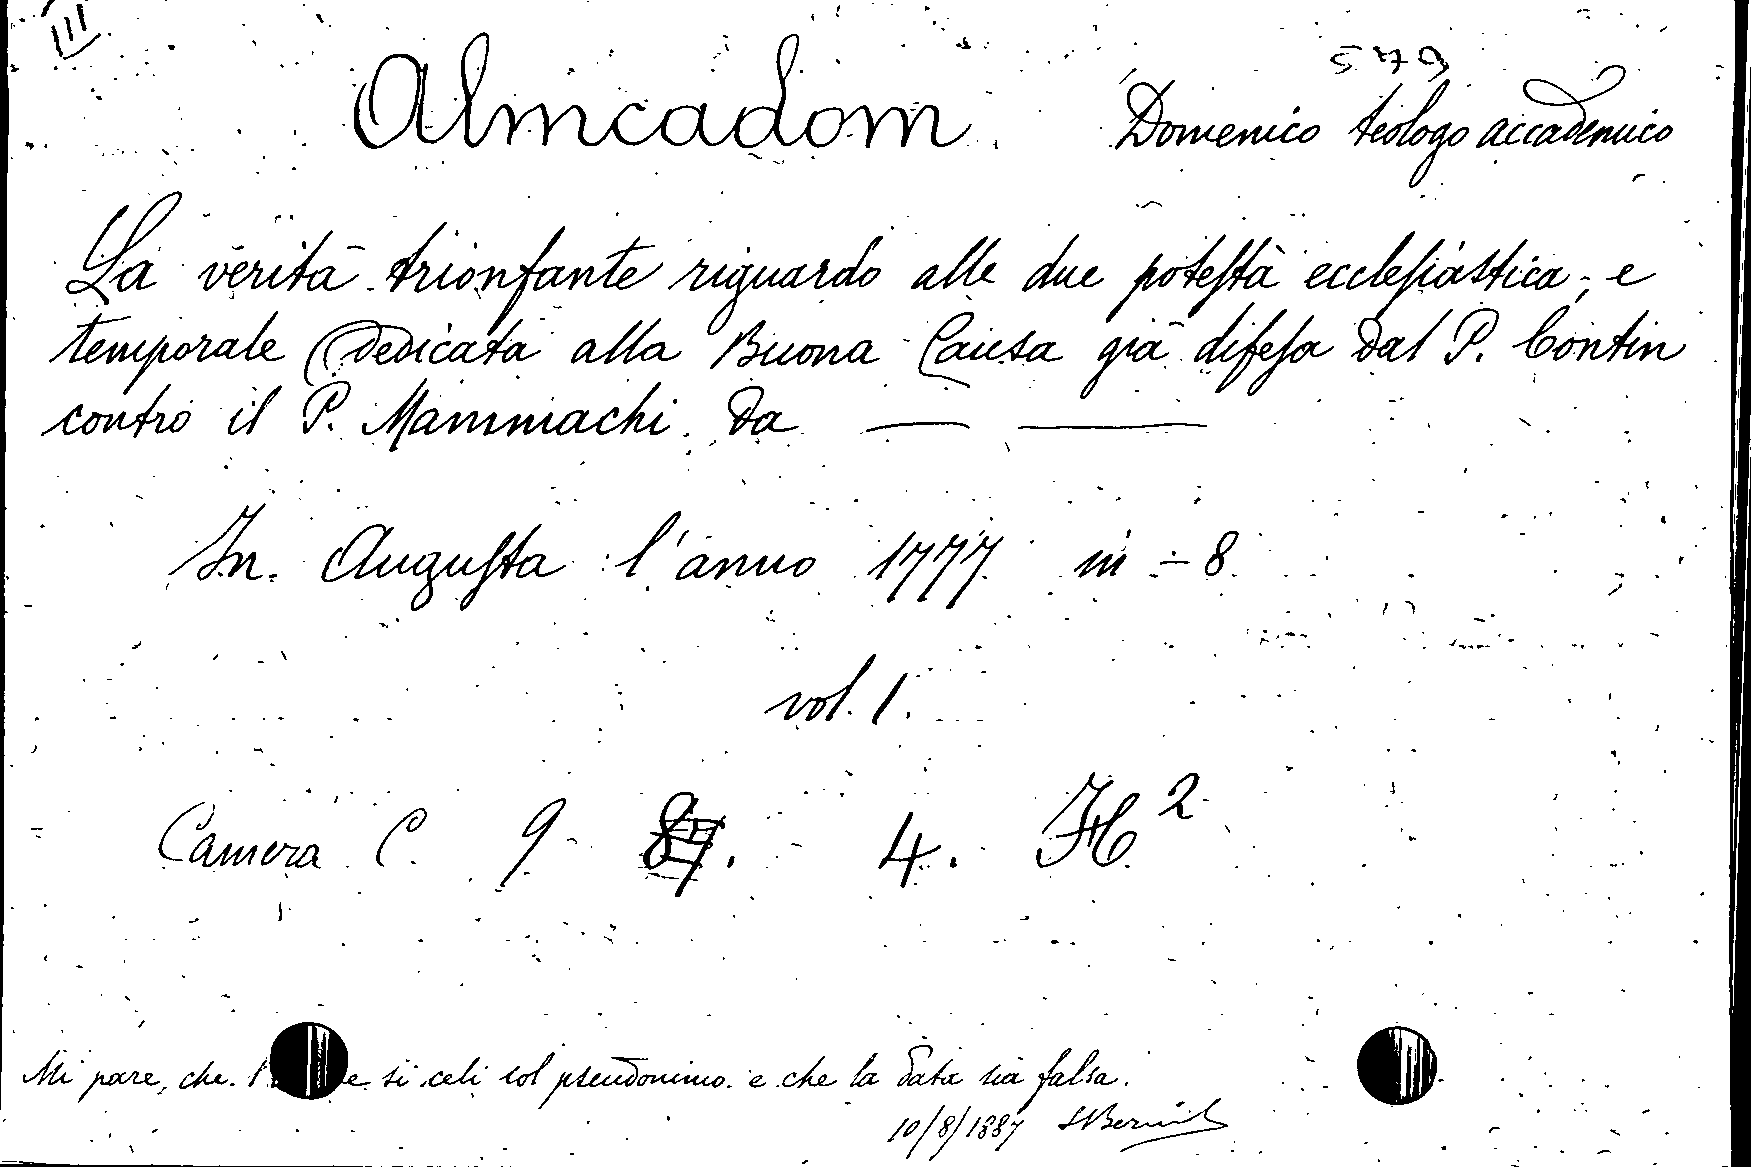 III
579
Almcadom Domenico teologo accademico
La verità trionfante riguardo alle due poteſtà eccleſiastica, e
temporale (dedicata alla Buona Causa già difeſa dal P. Contin
contro il P. Mammachi da — —
In Auguſta l'anno 1777 in - 8
vol. 1.
Camera C. 9 87. 4. H²
Mi pare, che l' e si celi sol pseudonimo e che la data sia falsa.
10/8/1887